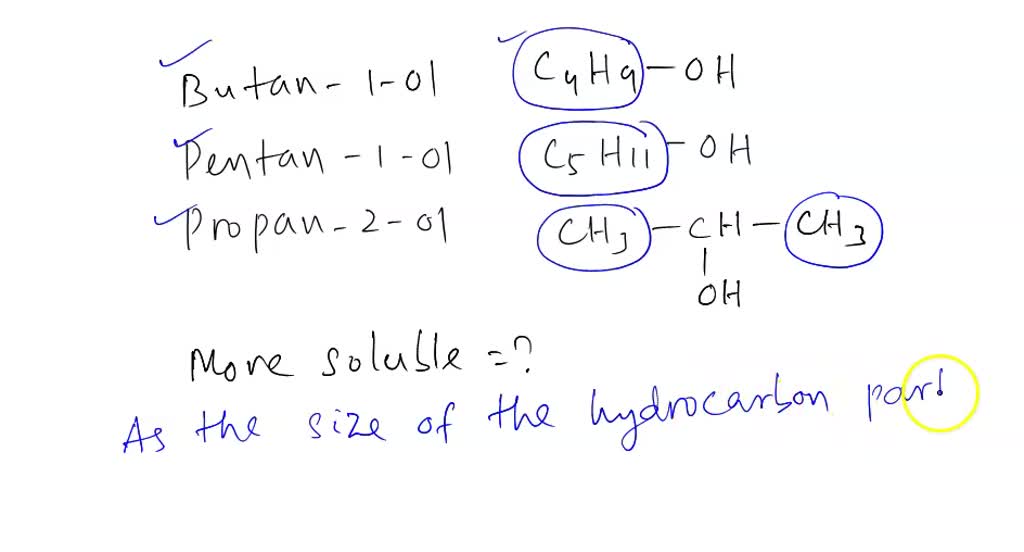 Butan-1-ol C4H9-OH
Pentan-1-ol C5H11-OH
Propan-2-ol CH3-CH-CH3
OH
More soluble =?
As the size of the hydrocarbon part